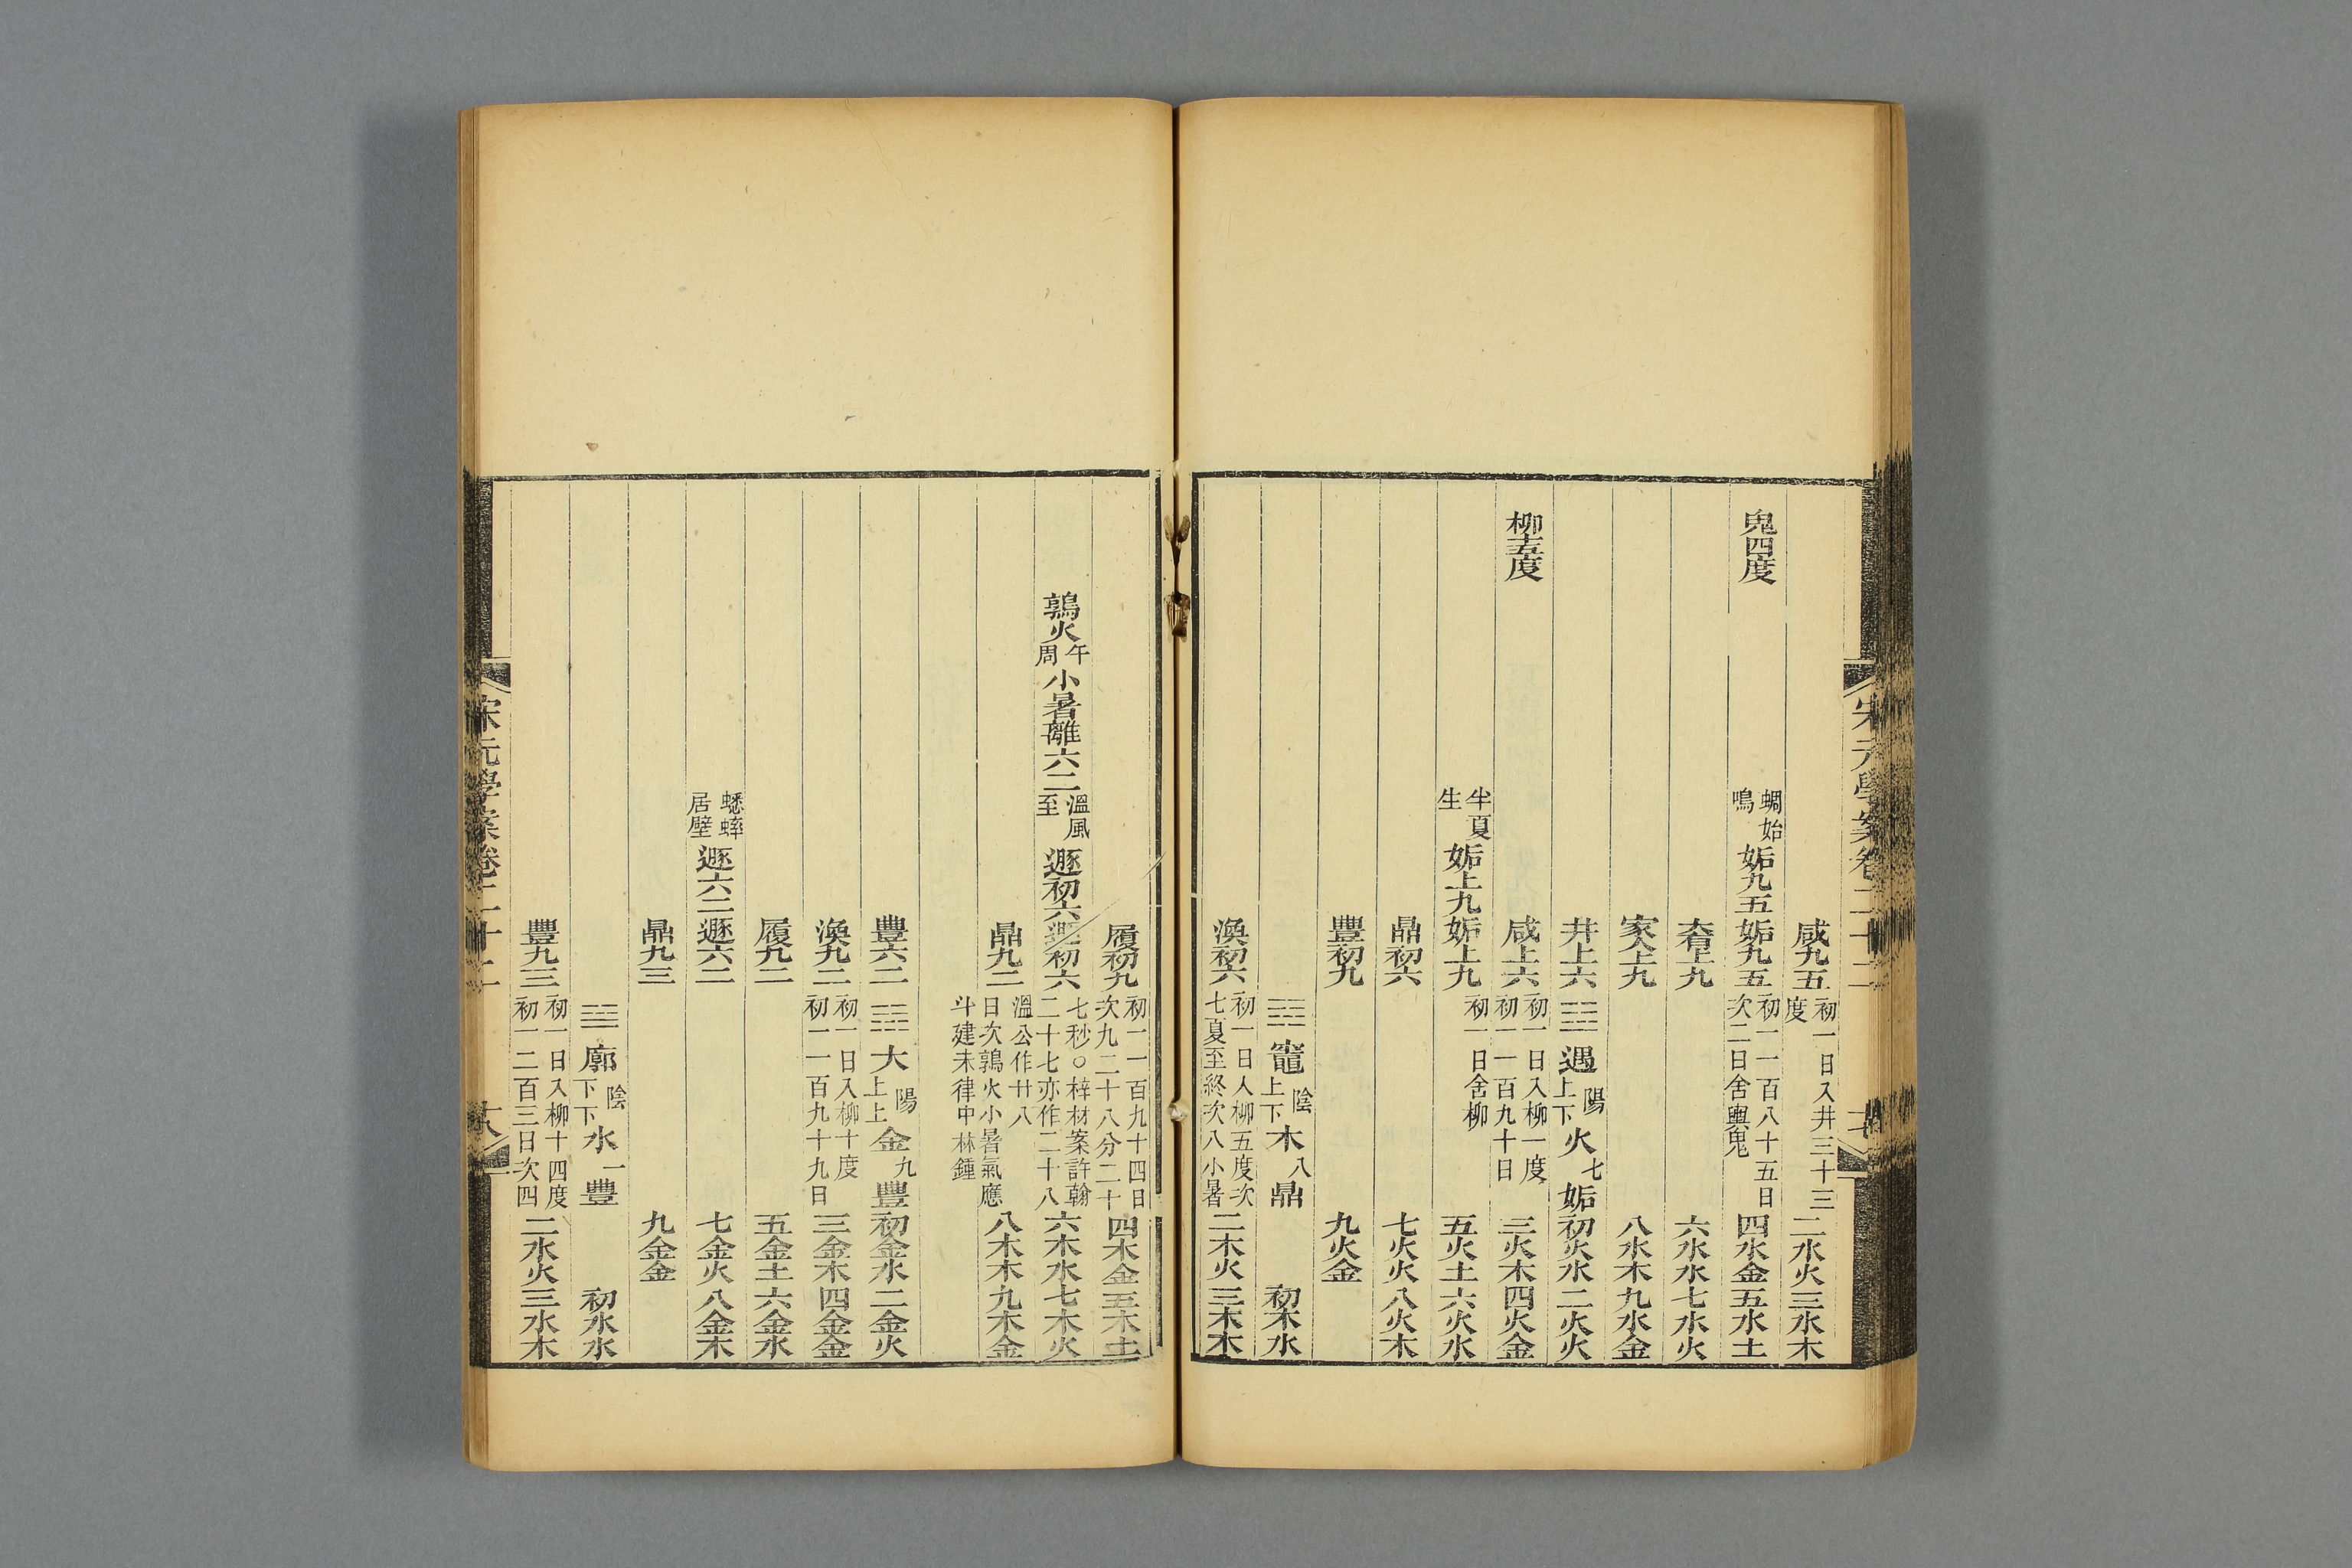 咸九五 初一日入井三十三度 二水火三水木
鬼四度 蜩始鳴 姤九五 姤九五 初一一百八十五日次二日舍輿鬼 四水金五水土
上九 六水水七水火
家人上九 八水木九水金
井上六 遇 陽上下 火七 姤 初火水二火火
柳十五度 咸上六 初一日入柳一度初一一百九十日 三火木四火金
半夏生 姤上九 姤上九 初一日舍柳 五火土六火水
鼎初六 七火火八火木
豐初九 九火金
竈 陰上下 木八 鼎 初木水
渙初六 初一日入柳五度次七夏至終次八小暑 二木火三木木
宋元學案卷二十二
履初九 初一一百九十四日次九二十八分二十 四木金五木土
鶉火 午周 小暑離六二 溫風至 遯初六 遯初六 七秒○梓材案許翰二十七亦作二十八 六木水七木火
鼎九二 溫公作廿八 八木木九木金
日次鶉火小暑氣應斗建未律中林鍾
豐六二 大 陽上上 金九 豐 初金水二金火
渙九二 初一日入柳十度初一一百九十九日 三金木四金金
履九二 五金土六金水
蟋蟀居壁 遯六二 遯六二 七金火八金木
鼎九三 九金金
廓 陰下下 水一 豐 初水水
豐九三 初一日入柳十四度初一二百三日次四 二水火三水木
宋元學案卷二十二 十八